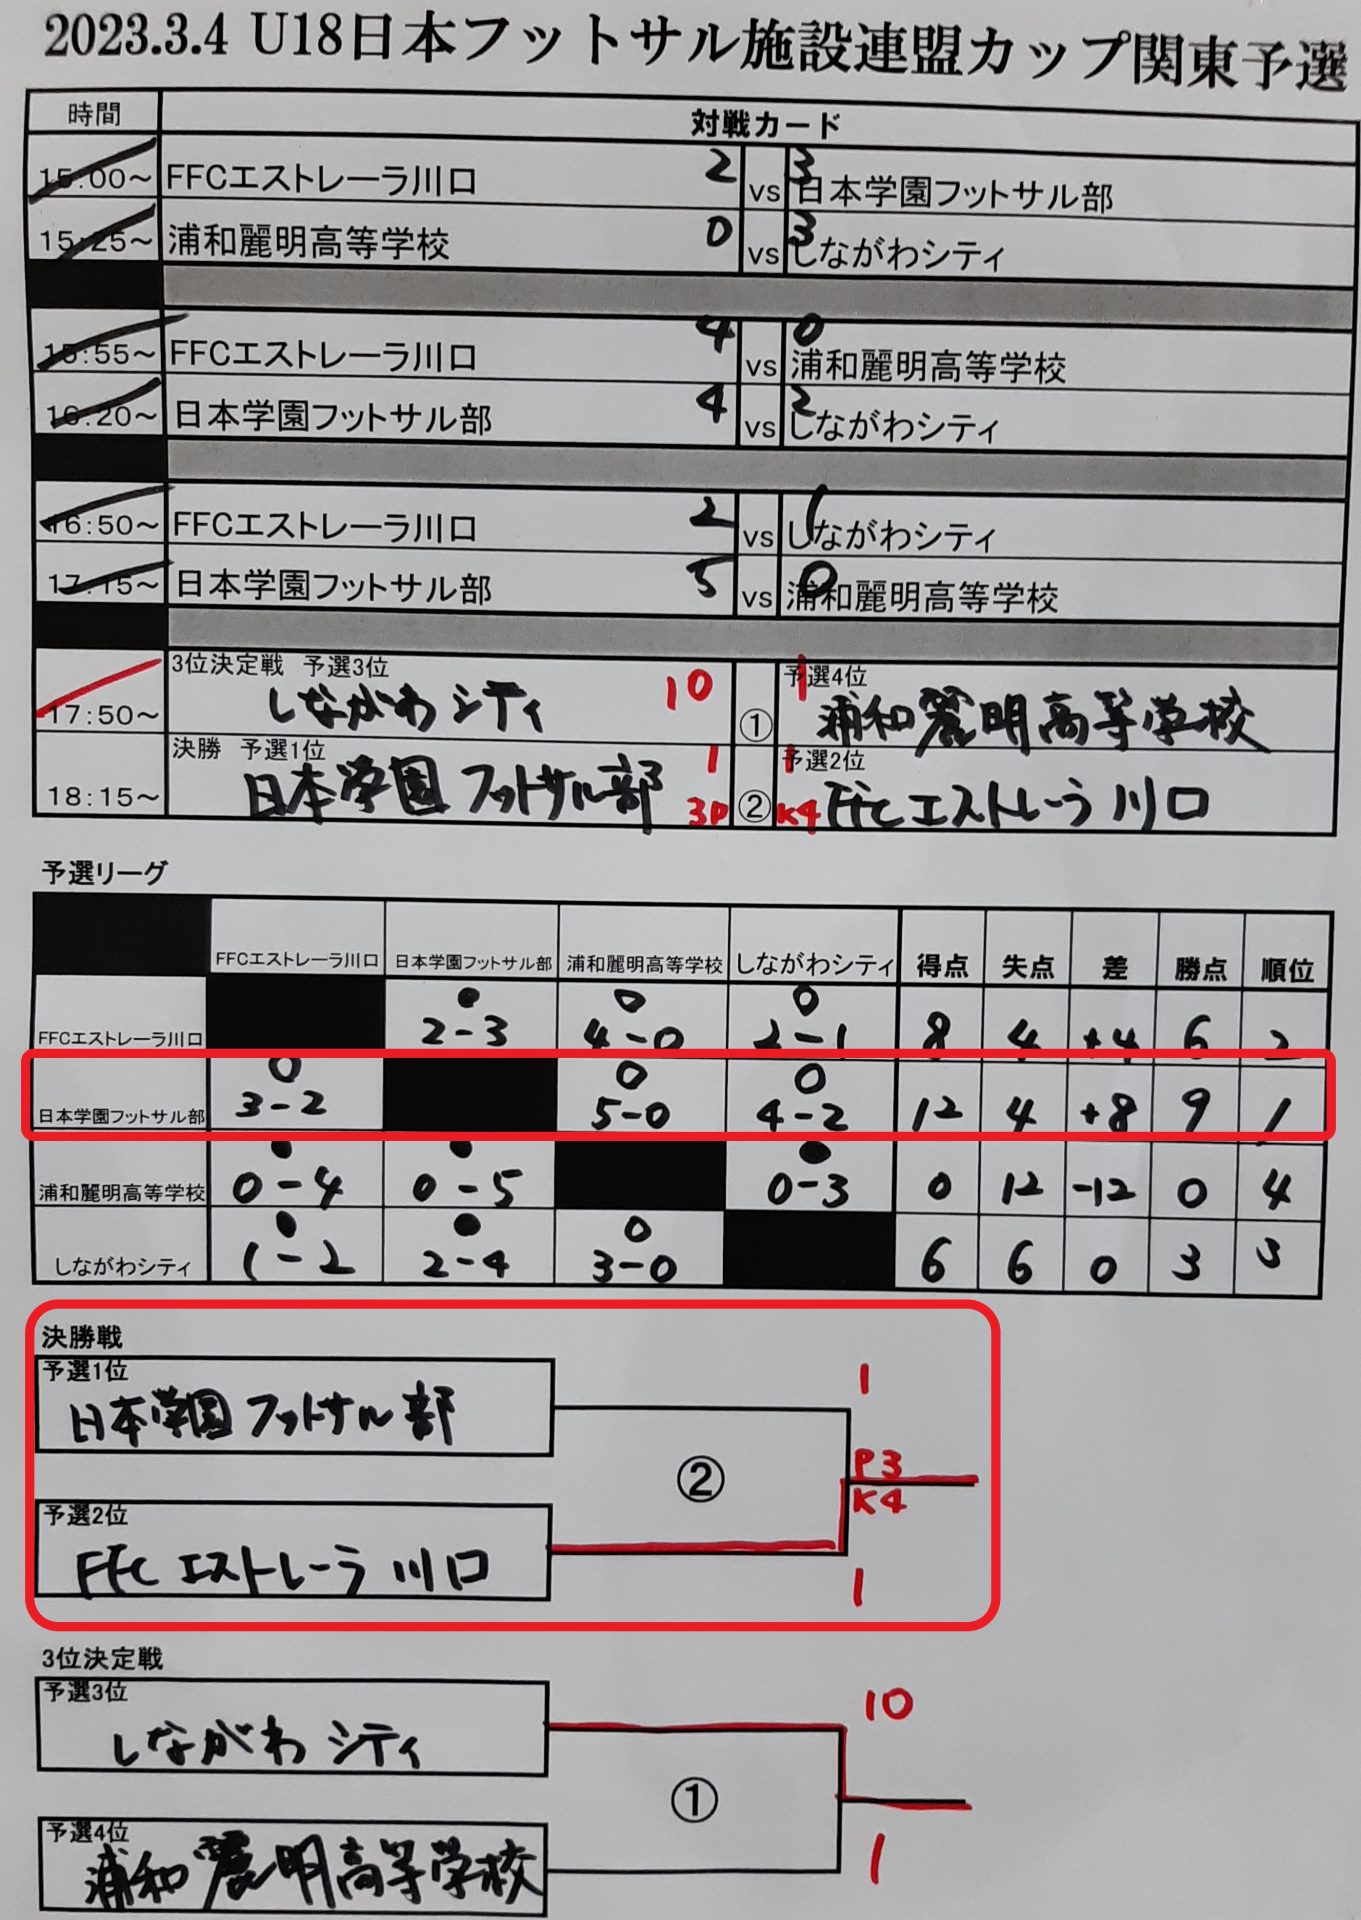 2023.3.4 U18日本フットサル施設連盟カップ関東予選
時間 対戦カード
15:00～ FFCエストレーラ川口 2 vs 3 日本学園フットサル部
15:25～ 浦和麗明高等学校 0 vs 3 しながわシティ
15:55～ FFCエストレーラ川口 4 vs 0 浦和麗明高等学校
16:20～ 日本学園フットサル部 4 vs 2 しながわシティ
16:50～ FFCエストレーラ川口 2 vs 1 しながわシティ
17:15～ 日本学園フットサル部 5 vs 0 浦和麗明高等学校
3位決定戦 予選3位 予選4位
17:50～ しながわシティ 10 ① 1 浦和麗明高等学校
決勝 予選1位 1 1 予選2位
18:15～ 日本学園フットサル部 3P ② K4 FFCエストレーラ川口
予選リーグ
FFCエストレーラ川口 日本学園フットサル部 浦和麗明高等学校 しながわシティ 得点 失点 差 勝点 順位
● ○ ○
FFCエストレーラ川口 2-3 4-0 2-1 8 4 +4 6 2
○ ○ ○
日本学園フットサル部 3-2 5-0 4-2 12 4 +8 9 1
● ● ●
浦和麗明高等学校 0-4 0-5 0-3 0 12 -12 0 4
● ● ○
しながわシティ 1-2 2-4 3-0 6 6 0 3 3
決勝戦
予選1位
日本学園フットサル部 1
② P3
K4
予選2位
FFCエストレーラ川口 1
3位決定戦
予選3位
しながわシティ 10
①
予選4位
浦和麗明高等学校 1